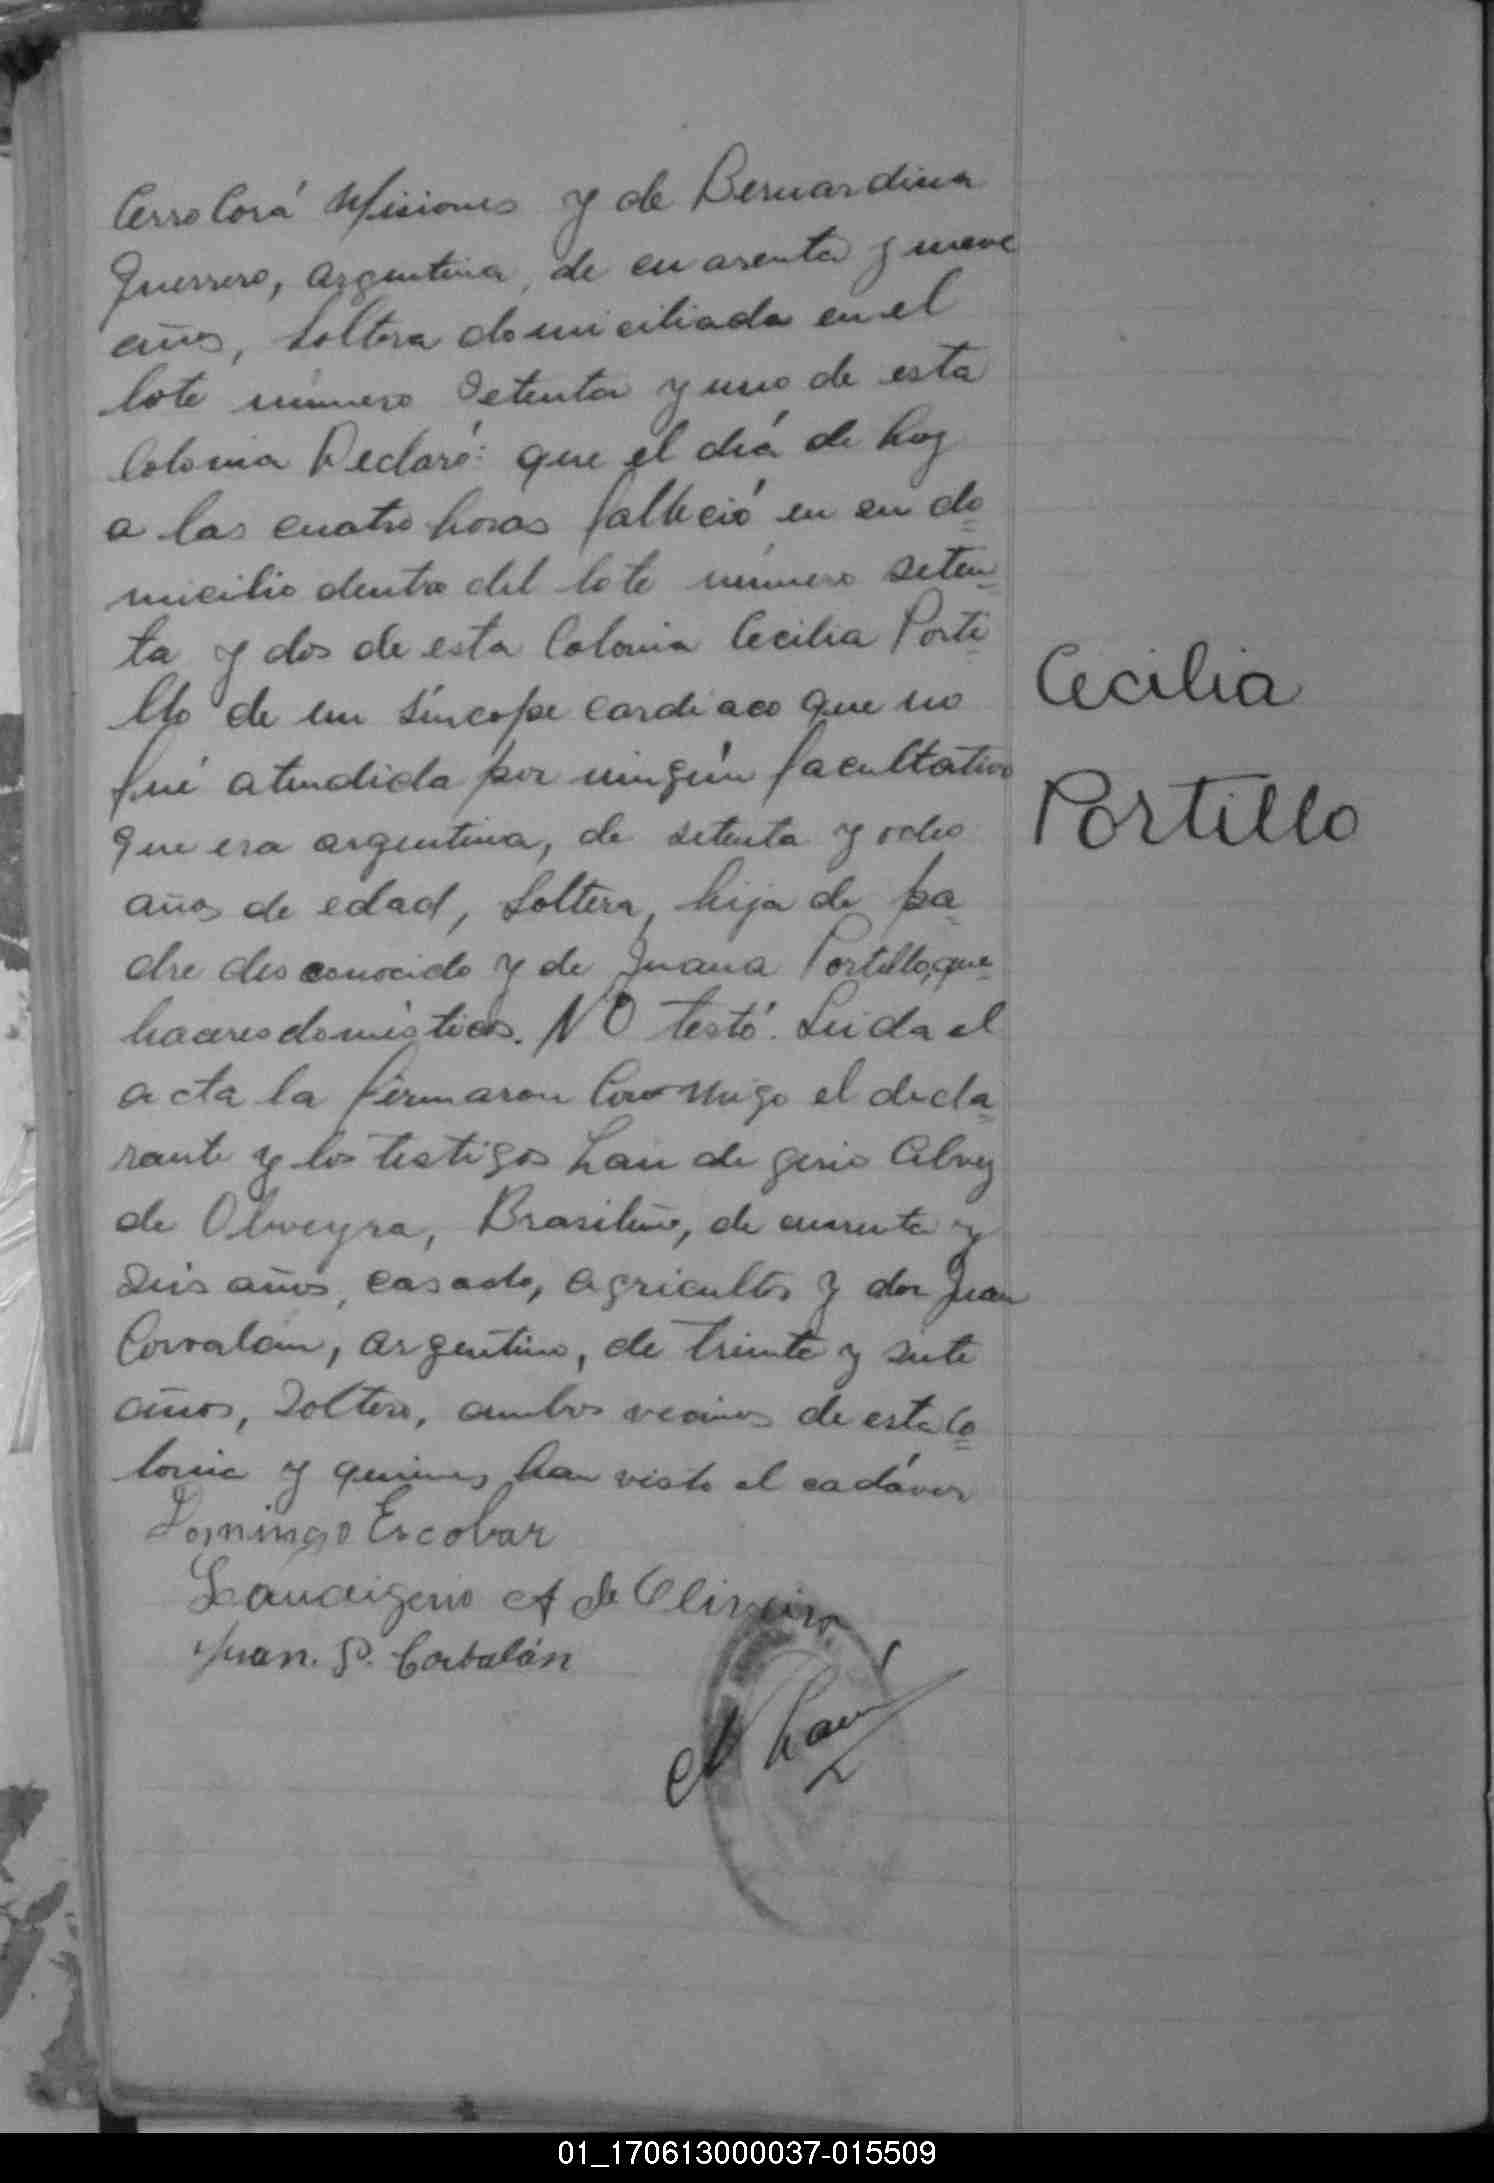 Cerro Corá Misiones y de Bernardina
Guerrero, argentina, de cuarenta y nueve
años, soltera domiciliada en el
lote número setenta y uno de esta
Colonia Declaró: que el día de hoy
a las cuatro horas falleció en su do
micilio dentro del lote número seten
ta y dos de esta Colonia Cecilia Porti
llo de un síncope cardiaco que no
fué atendida por ningún facultativo
que era argentina, de setenta y ocho
años de edad, soltera, hija de pa
dre desconocido y de Juana Portillo, que
haceres domésticos. NO testó. Leida el
acta la firmaron conmigo el decla
rante y los testigos Laudegerio Alvez
de Oliveyra, Brasileño, de cuarenta y
seis años, casado, agricultor y don Juan
Corvalán, argentino, de treinta y siete
años, soltero, ambos vecinos de esta Co
lonia y quienes han visto el cadáver
Domingo Escobar
Laudigerio A de Oliveira
Juan. P. Corbalán
Cecilia
Portillo
01_170613000037-015509